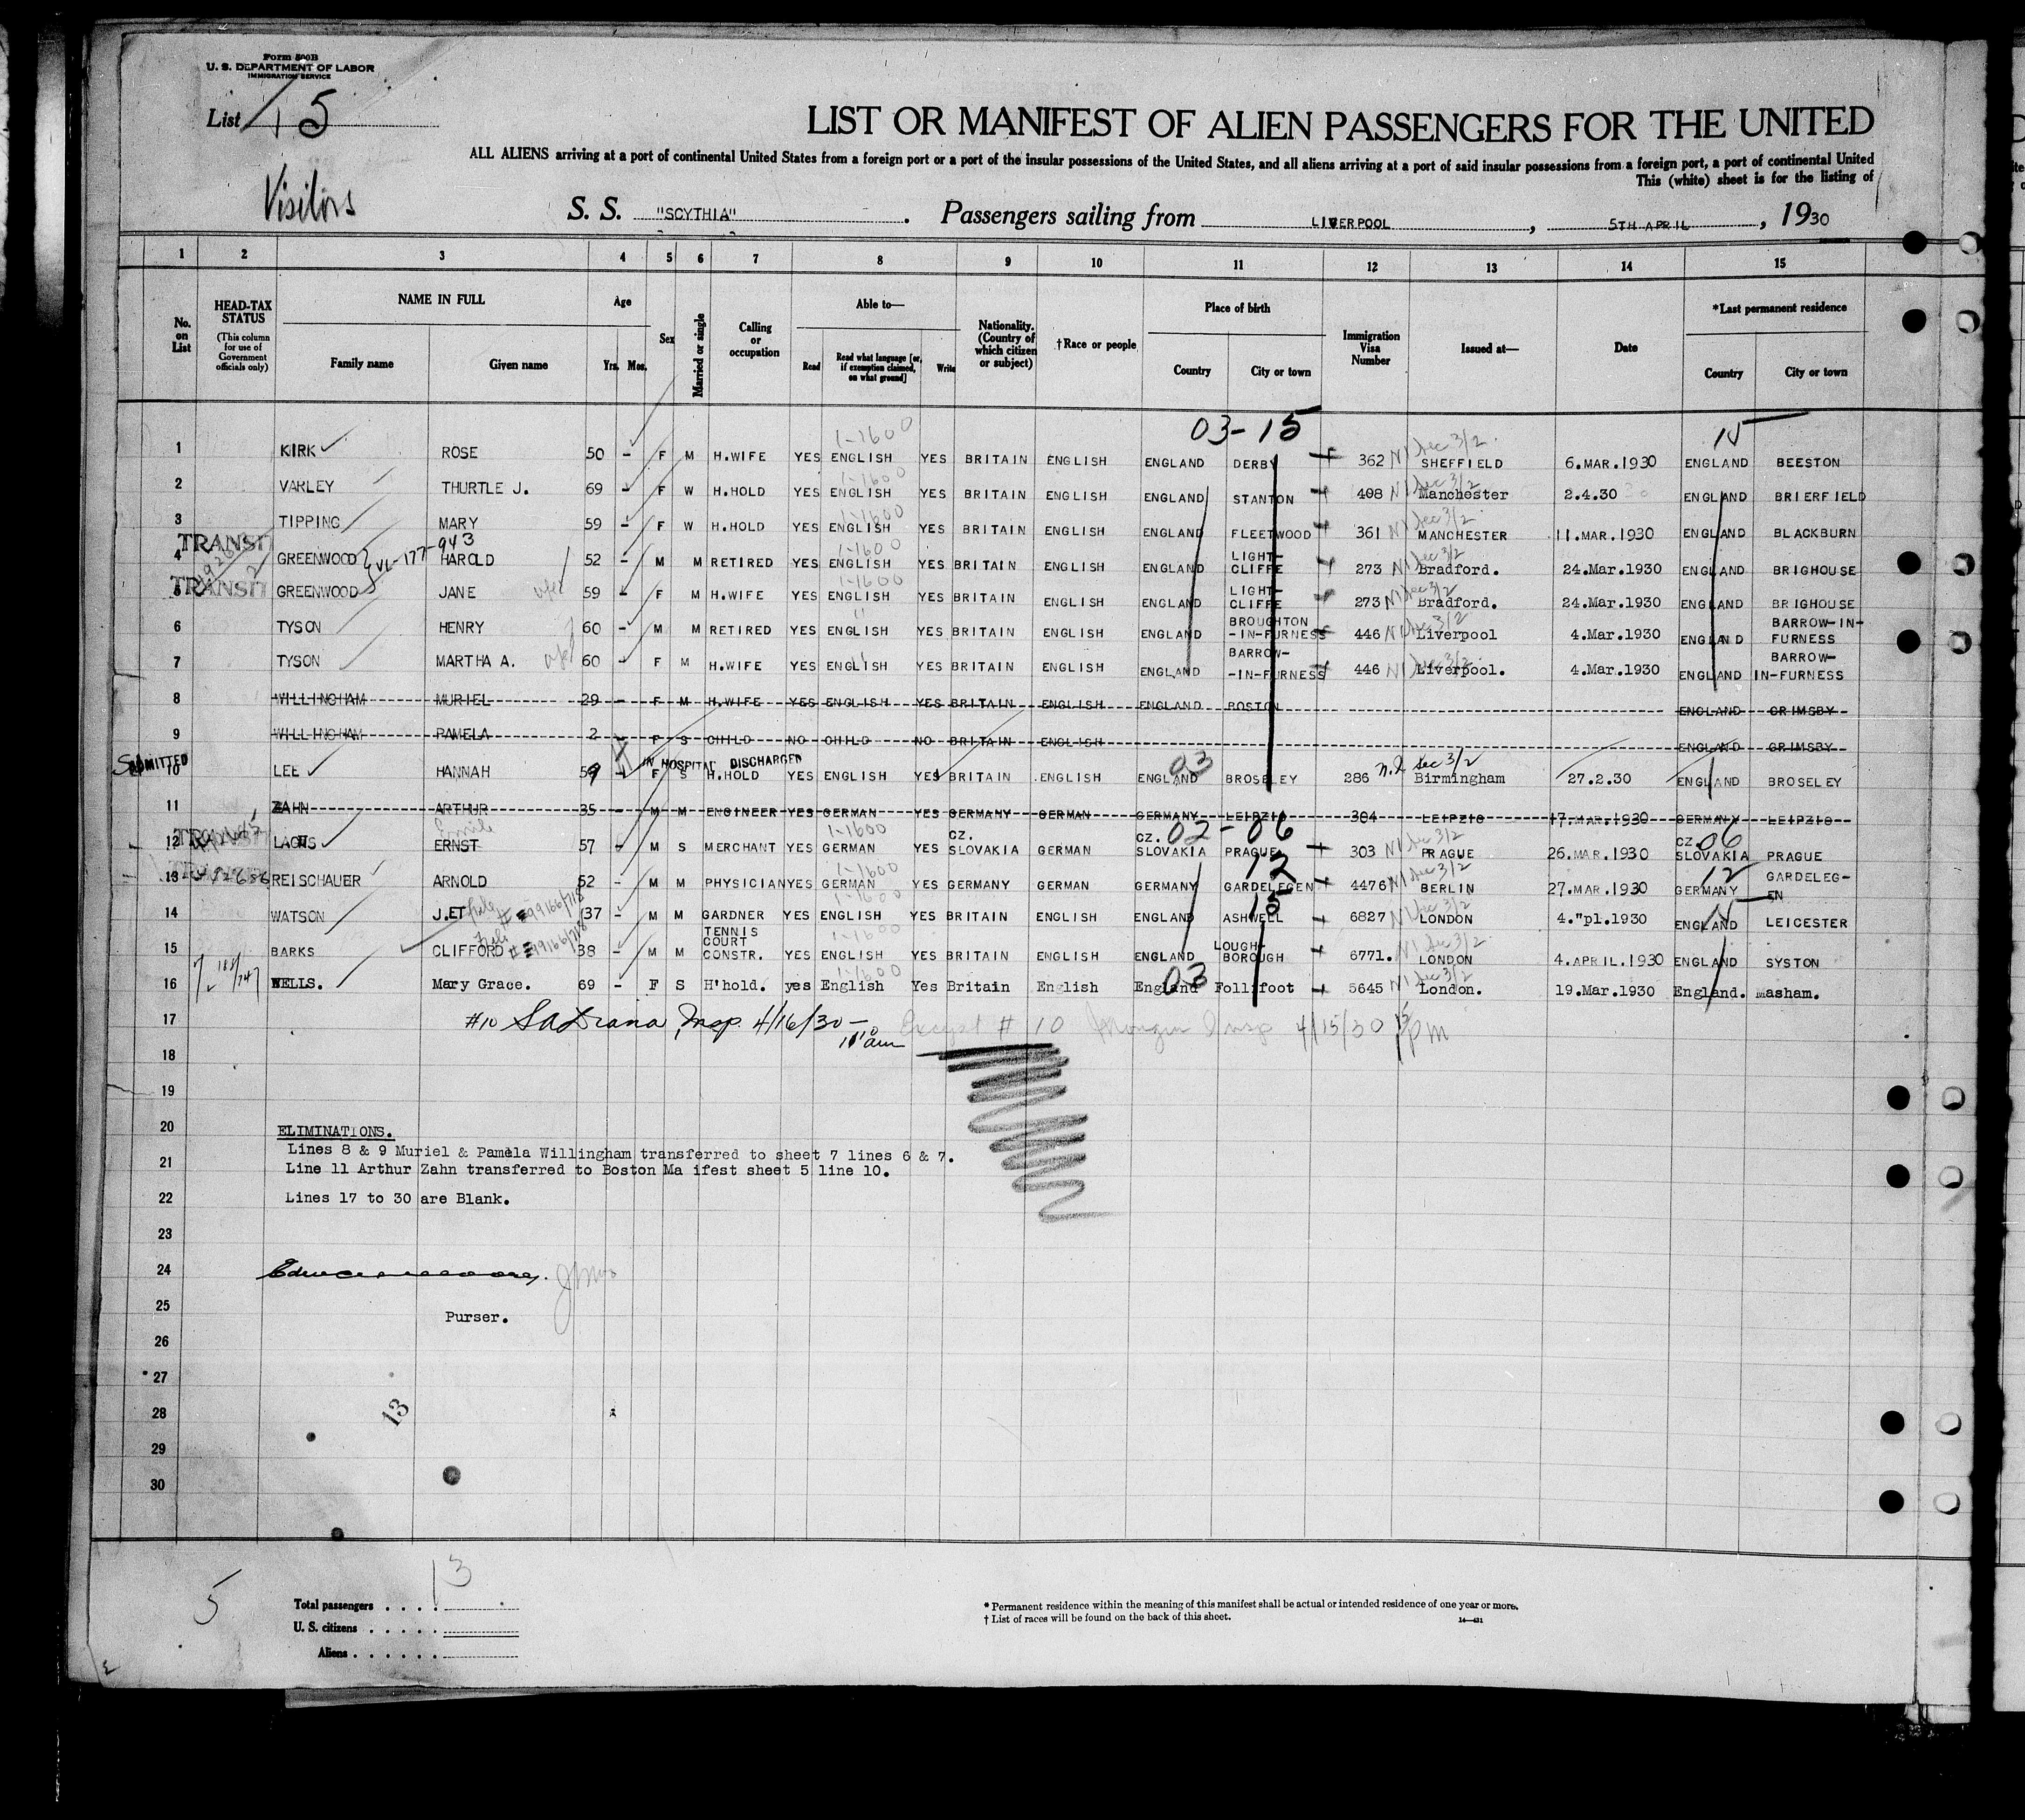 Form 500B
U. S. DEPARTMENT OF LABOR
IMMIGRATION SERVICE
List 15
Visitors
LIST OR MANIFEST OF ALIEN PASSENGERS FOR THE UNITED
ALL ALIENS arriving at a port of continental United States from a foreign port or a port of the insular possessions of the United States, and all aliens arriving at a port of said insular possessions from a foreign port, a port of continental United
This (white) sheet is for the listing of
S. S. "SCYTHIA" . Passengers sailing from LIVERPOOL , 5TH APRIL , 1930
1 2 3 4 5 6 7 8 9 10 11 12 13 14 15
No. on List
HEAD-TAX STATUS (This column for use of Government officials only)
NAME IN FULL
Family name Given name
Age
Yrs. Mos.
Sex
Married or single
Calling or occupation
Able to—
Read
Read what language [or, if exemption claimed, on what ground]
Write
Nationality. (Country of which citizen or subject)
†Race or people
Place of birth
Country City or town
Immigration Visa Number
Issued at—
Date
*Last permanent residence
Country City or town
03-15 15
1 KIRK ROSE 50 - F M H.WIFE YES ENGLISH YES BRITAIN ENGLISH ENGLAND DERBY 362 SHEFFIELD 6.MAR.1930 ENGLAND BEESTON
2 VARLEY THURTLE J. 69 - F W H.HOLD YES ENGLISH YES BRITAIN ENGLISH ENGLAND STANTON 408 Manchester 2.4.30 ENGLAND BRIERFIELD
3 TIPPING MARY 59 - F W H.HOLD YES ENGLISH YES BRITAIN ENGLISH ENGLAND FLEETWOOD 361 MANCHESTER 11.MAR.1930 ENGLAND BLACKBURN
TRANSIT
4 GREENWOOD HAROLD 52 - M M RETIRED YES ENGLISH YES BRITAIN ENGLISH ENGLAND LIGHT-CLIFFE 273 Bradford. 24.Mar.1930 ENGLAND BRIGHOUSE
TRANSIT
5 GREENWOOD JANE 59 - F M H.WIFE YES ENGLISH YES BRITAIN ENGLISH ENGLAND LIGHT-CLIFFE 273 Bradford. 24.Mar.1930 ENGLAND BRIGHOUSE
6 TYSON HENRY 60 - M M RETIRED YES ENGLISH YES BRITAIN ENGLISH ENGLAND BROUGHTON -IN-FURNESS 446 Liverpool 4.Mar.1930 ENGLAND BARROW-IN-FURNESS
7 TYSON MARTHA A. 60 - F M H.WIFE YES ENGLISH YES BRITAIN ENGLISH ENGLAND BARROW--IN-FURNESS 446 Liverpool. 4.Mar.1930 ENGLAND BARROW-IN-FURNESS
8 WILLINGHAM MURIEL 29 - F M H.WIFE YES ENGLISH YES BRITAIN ENGLISH ENGLAND BOSTON ENGLAND GRIMSBY
9 WILLINGHAM PAMELA 2 F S CHILD NO CHILD NO BRITAIN ENGLISH ENGLAND GRIMSBY
ADMITTED IN HOSPITAL DISCHARGED
10 LEE HANNAH 59 - F S H.HOLD YES ENGLISH YES BRITAIN ENGLISH ENGLAND 03 BROSELEY 286 Birmingham 27.2.30 ENGLAND BROSELEY
11 ZAHN ARTHUR 35 - M M ENGINEER YES GERMAN YES GERMANY GERMAN GERMANY LEIPZIG 304 LEIPZIG 17.MAR.1930 GERMANY LEIPZIG
02-06 06
12 ERNST 57 - M S MERCHANT YES GERMAN YES CZ. SLOVAKIA GERMAN CZ. SLOVAKIA PRAGUE 303 PRAGUE 26.MAR.1930 CZ. SLOVAKIA PRAGUE
13 REISCHAUER ARNOLD 52 - M M PHYSICIAN YES GERMAN YES GERMANY GERMAN GERMANY 12 GARDELEGEN 4476 BERLIN 27.MAR.1930 GERMANY 12 GARDELEG-EN
14 WATSON J.ET 37 - M M GARDNER YES ENGLISH YES BRITAIN ENGLISH ENGLAND 15 ASHWELL 6827 LONDON 4."pl.1930 ENGLAND 15 LEICESTER
15 BARKS CLIFFORD 38 - M M TENNIS COURT CONSTR. YES ENGLISH YES BRITAIN ENGLISH ENGLAND LOUGH-BOROUGH 6771. LONDON 4.APRIL.1930 ENGLAND SYSTON
16 WELLS. Mary Grace. 69 - F S H'hold. yes English Yes Britain English England 03 Follifoot 5645 London. 19.Mar.1930 England. Masham.
17 #10 Insp. 4/16/30 - 11 am Except # 10 Insp 4/15/30 pm
18
19
20 ELIMINATIONS.
Lines 8 & 9 Muriel & Pamela Willingham transferred to sheet 7 lines 6 & 7.
21 Line 11 Arthur Zahn transferred to Boston Ma ifest sheet 5 line 10.
22 Lines 17 to 30 are Blank.
23
24
25 Purser.
26
27
28 13
29
30
5
Total passengers . . . . 13
U. S. citizens . . . . . .
Aliens . . . . . .
* Permanent residence within the meaning of this manifest shall be actual or intended residence of one year or more.
† List of races will be found on the back of this sheet.